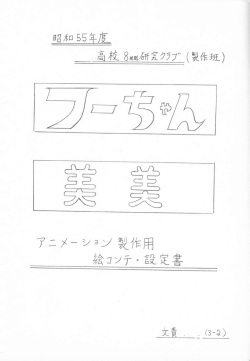 昭和55年度
高校8mm研究クラブ(製作班)
フーちゃん
美美
アニメーション製作用
絵コンテ・設定書
文責 . . . (3-2)